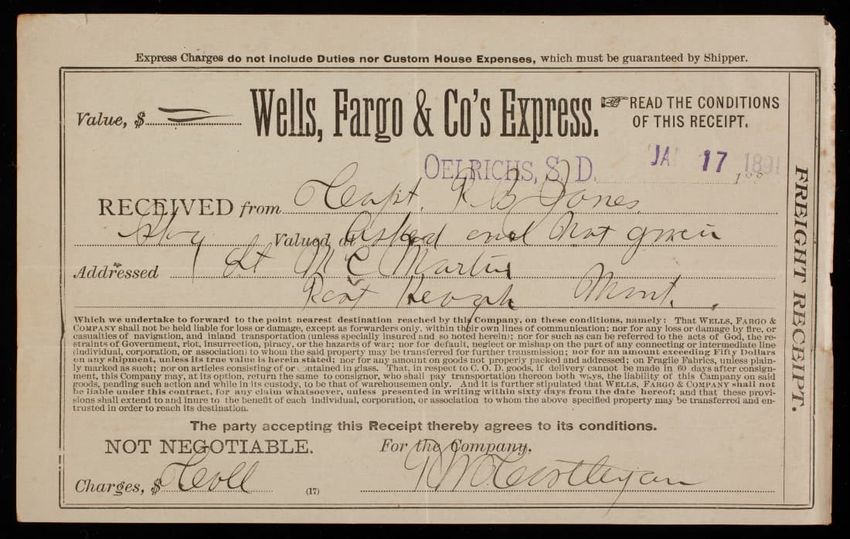 Express Charges do not include Duties nor Custom House Expenses, which must be guaranteed by Shipper.
Value, $
Wells, Fargo & Co's Express.
READ THE CONDITIONS
OF THIS RECEIPT.
OELRICHS, S. D. JAN 17 1891
188
RECEIVED from Capt. R B Jones
Valued at Asked and Not given
Addressed Lt M C Martin
Fort Keogh Mont.
Which we undertake to forward to the point nearest destination reached by this Company, on these conditions, namely: That WELLS, FARGO &
COMPANY shall not be held liable for loss or damage, except as forwarders only, within their own lines of communication; nor for any loss or damage by fire, or
casualties of navigation, and inland transportation (unless specially insured and so noted herein); nor for such as can be referred to the acts of God, the re-
straints of Government, riot, insurrection, piracy, or the hazards of war; nor for default, neglect or mishap on the part of any connecting or intermediate line
(individual, corporation, or association) to whom the said property may be transferred for further transmission; nor for an amount exceeding Fifty Dollars
on any shipment, unless its true value is herein stated; nor for any amount on goods not properly packed and addressed; on Fragile Fabrics, unless plain-
ly marked as such; nor on articles consisting of or contained in glass. That, in respect to C. O. D. goods, if delivery cannot be made in 60 days after consign-
ment, this Company may, at its option, return the same to consignor, who shall pay transportation thereon both ways, the liability of this Company on said
goods, pending such action and while in its custody, to be that of warehousemen only. And it is further stipulated that WELLS, FARGO & COMPANY shall not
be liable under this contract, for any claim whatsoever, unless presented in writing within sixty days from the date hereof; and that these provi-
sions shall extend to and inure to the benefit of each individual, corporation, or association to whom the above specified property may be transferred and en-
trusted in order to reach its destination.
The party accepting this Receipt thereby agrees to its conditions.
NOT NEGOTIABLE.
For the Company.
Charges, $ Coll
(17)
FREIGHT RECEIPT.